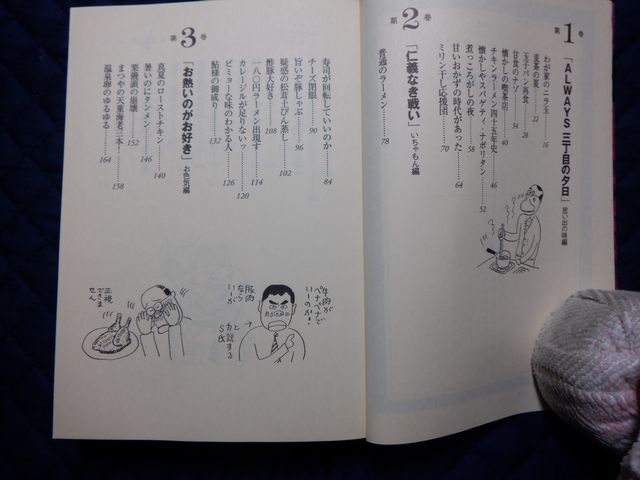 第1巻
「ALWAYS 三丁目の夕日」 思い出の味編
わが家のニラ玉 16
麦茶の夏 22
玉子パン再食 28
甘食のナゾ 34
懐かしの喫茶店 40
チキンラーメン四十五年史 46
懐かしやスパゲティ・ナポリタン 52
煮っころがしの夜 58
甘いおかずの時代があった 64
ミリン干し応援団 70
第2巻
「仁義なき戦い」 いちゃもん編
普通のラーメン 78
寿司が回転していいのか 84
チーズ閉眼 90
旨いぞ豚しゃぶ 96
疑惑の松茸土びん蒸し 102
酢豚大好き 108
一八〇円ラーメン出現す 114
カレージルが足りないッ 120
ビミョーな味のわかる人 126
鮎様の御成り 132
第3巻
「お熱いのがお好き」 お色気編
真夏のローストチキン 140
暑いのにタンメン 146
栗饅頭の崩壊 152
まつやの天重海老二本 158
温泉卵のゆるゆる 164
牛肉が
ペナペナで
いーのか!
豚肉
ならいーが
と
力説する
S氏
正視
できま
せん